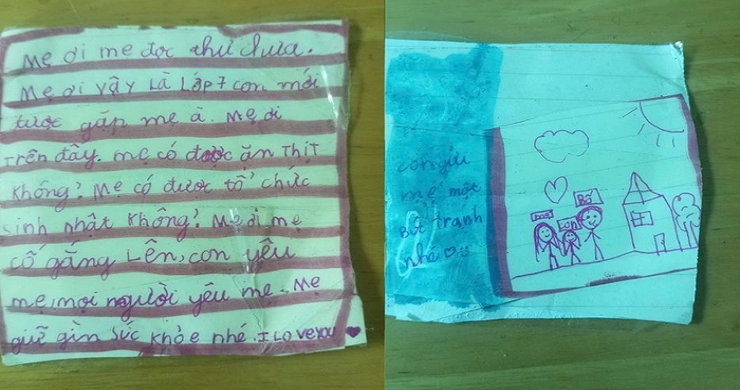 Mẹ ơi mẹ đọc thư chưa.
Mẹ ơi vậy là Lớp 7 con mới
được gặp mẹ à. Mẹ ơi
Trên đấy. mẹ có được ăn Thịt
Không? Mẹ có được tổ chức
sinh nhật không? Mẹ ơi mẹ
cố gắng Lên, con yêu
mẹ, mọi người yêu mẹ. Mẹ
giữ gìn sức khỏe nhé. I Love you
con gửi
mẹ một
Bức Tranh
nhé
con
Bố